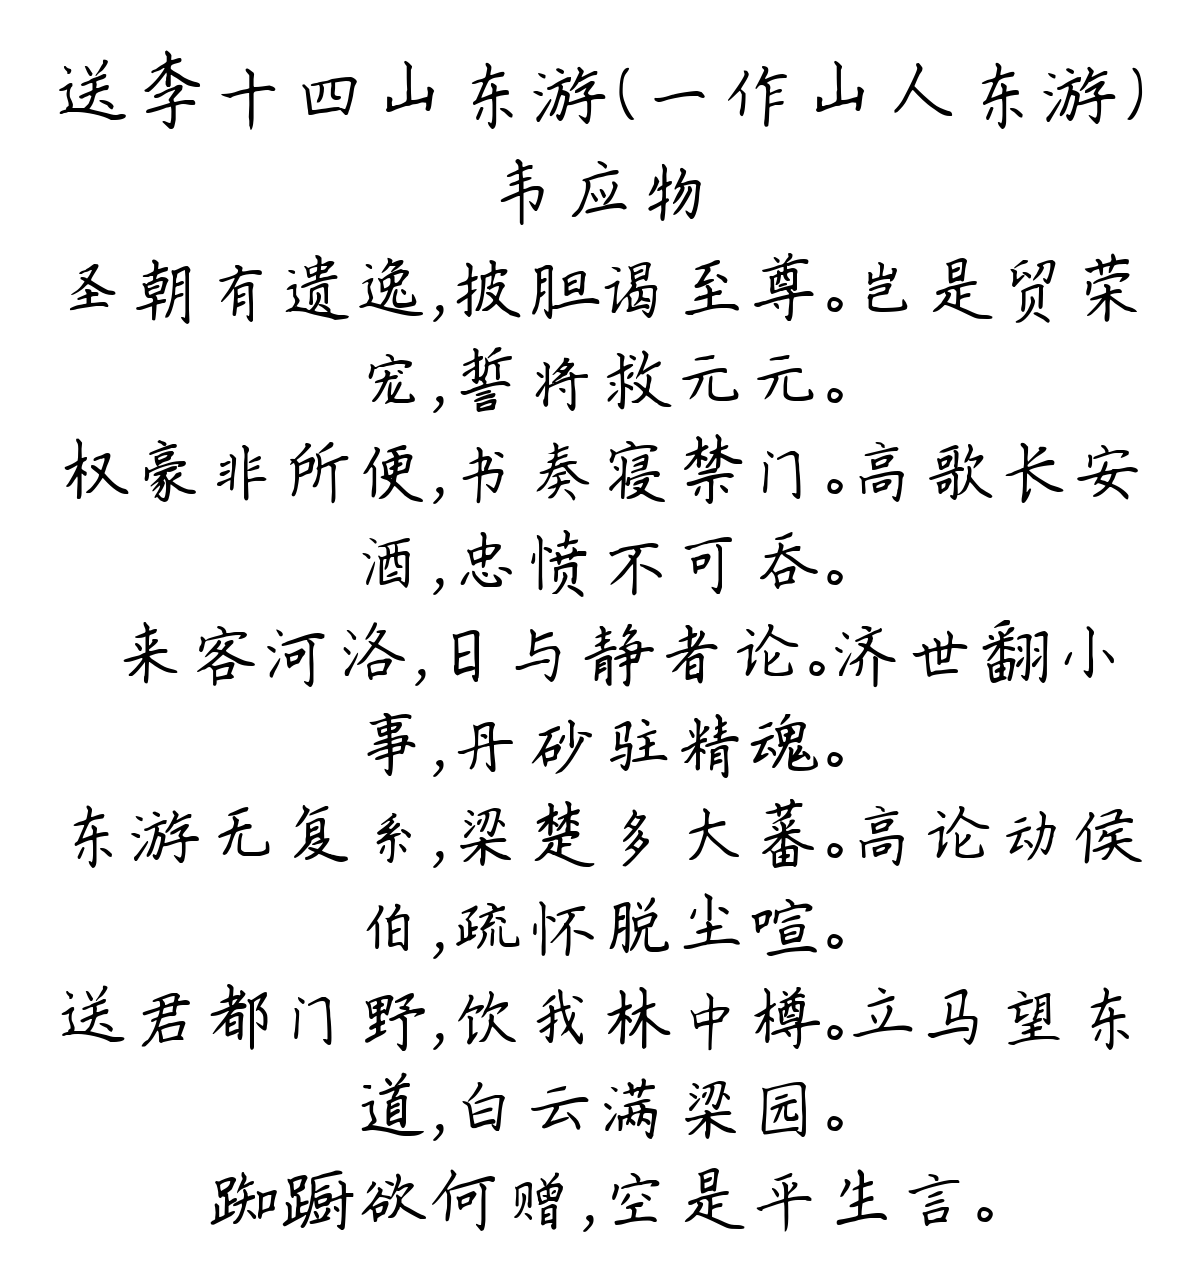 送李十四山东游(一作山人东游)
韦应物
圣朝有遗逸,披胆谒至尊。岂是贸荣
宠,誓将救元元。
权豪非所便,书奏寝禁门。高歌长安
酒,忠愤不可吞。
来客河洛,日与静者论。济世翻小
事,丹砂驻精魂。
东游无复系,梁楚多大蕃。高论动侯
伯,疏怀脱尘喧。
送君都门野,饮我林中樽。立马望东
道,白云满梁园。
踟蹰欲何赠,空是平生言。